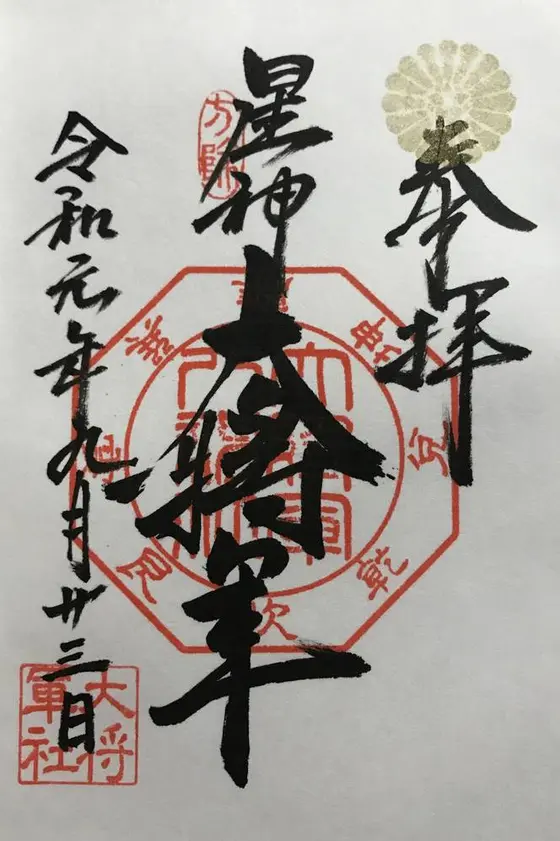 奉拝
星神
大将軍
令和元年九月廿三日
方除
兌
乾
艮
巽
坤
大将軍社